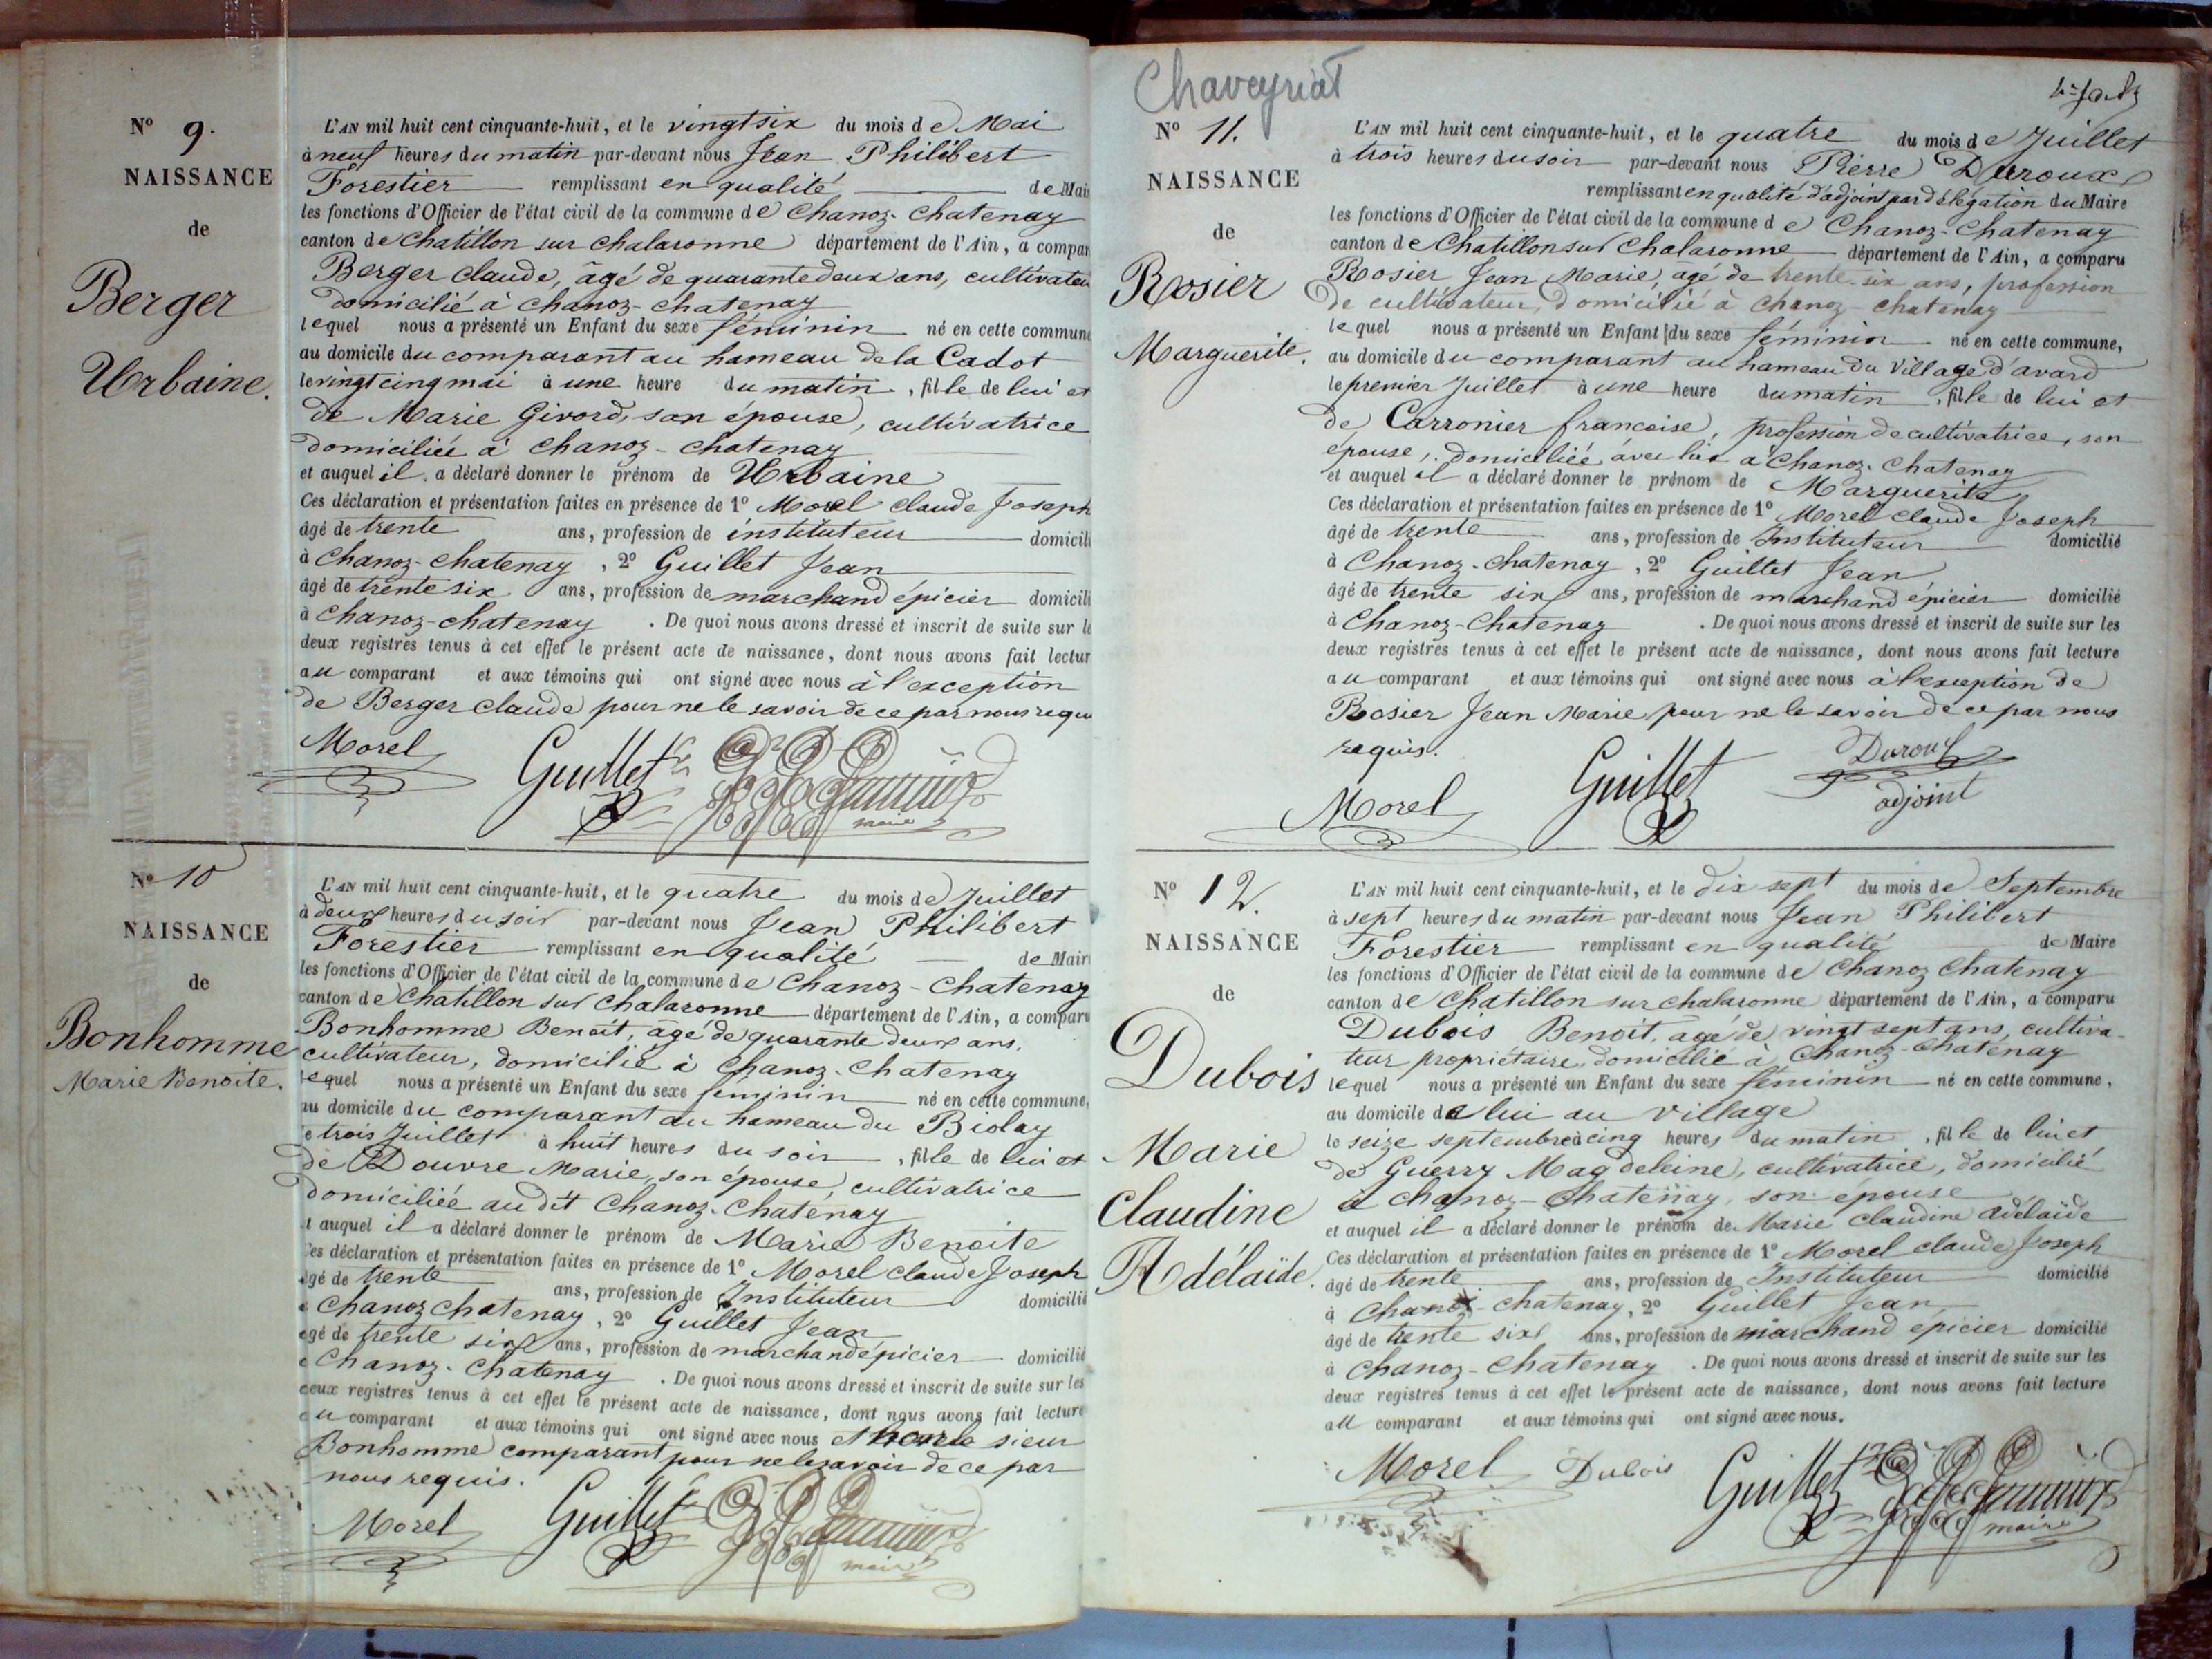 N° 9.
NAISSANCE
de
Berger
Urbaine.
L'AN mil huit cent cinquante-huit, et le vingt six du mois de Mai
à neuf heures du matin par-devant nous Jean Philibert
Forestier remplissant en qualité de Mair
les fonctions d'Officier de l'état civil de la commune de Chanoz-Chatenay
canton de Chatillon sur Chalaronne département de l'Ain, a compar
Berger Claude, âgé de quarante deux ans, cultivateu
domicilié à Chanoz-Chatenay
lequel nous a présenté un Enfant du sexe féminin né en cette commune
au domicile du comparant au hameau de la Cadot
le vingt cinq mai à une heure du matin, fille de lui et
de Marie Givord, son épouse, cultivatrice
domiciliée à Chanoz-Chatenay
et auquel il a déclaré donner le prénom de Urbaine
Ces déclaration et présentation faites en présence de 1° Morel Claude Joseph
âgé de trente ans, profession de instituteur domicili
à Chanoz-Chatenay, 2° Guillet Jean
âgé de trente six ans, profession de marchand épicier domicili
à Chanoz-Chatenay. De quoi nous avons dressé et inscrit de suite sur le
deux registres tenus à cet effet le présent acte de naissance, dont nous avons fait lectur
au comparant et aux témoins qui ont signé avec nous à l'exception
de Berger Claude pour ne le savoir de ce par nous requ
Morel Guillet
maire
N° 10
NAISSANCE
de
Bonhomme
Marie Benoite.
L'AN mil huit cent cinquante-huit, et le quatre du mois de Juillet
à deux heures du soir par-devant nous Jean Philibert
Forestier remplissant en qualité de Mair
les fonctions d'Officier de l'état civil de la commune de Chanoz-Chatenay
canton de Chatillon sur Chalaronne département de l'Ain, a comparu
Bonhomme Benoit, âgé de quarante deux ans,
cultivateur, domicilié à Chanoz-Chatenay
lequel nous a présenté un Enfant du sexe féminin né en cette commune,
au domicile du comparant au hameau du Biolay
le trois Juillet à huit heures du soir, fille de lui et
de Douvre Marie, son épouse, cultivatrice
domiciliée au dit Chanoz-Chatenay
et auquel il a déclaré donner le prénom de Marie Benoite
Ces déclaration et présentation faites en présence de 1° Morel Claude Joseph
âgé de trente ans, profession de Instituteur domicilié
à Chanoz Chatenay, 2° Guillet Jean
âgé de trente six ans, profession de marchand épicier domicilié
à Chanoz-Chatenay. De quoi nous avons dressé et inscrit de suite sur les
deux registres tenus à cet effet le présent acte de naissance, dont nous avons fait lecture
au comparant et aux témoins qui ont signé avec nous et hors le sieur
Bonhomme comparant pour ne le savoir de ce par
nous requis.
Morel Guillet
maire
Chaveyriat
N° 11.
NAISSANCE
de
Rosier
Marguerite.
L'AN mil huit cent cinquante-huit, et le quatre du mois de Juillet
à trois heures du soir par-devant nous Pierre Duroux
remplissant en qualité d'adjoint par délégation du Maire
les fonctions d'Officier de l'état civil de la commune de Chanoz-Chatenay
canton de Chatillon sur Chalaronne département de l'Ain, a comparu
Rosier Jean Marie, agé de trente-six ans, profession
de cultivateur, domicilié à Chanoz-Chatenay
lequel nous a présenté un Enfant du sexe féminin né en cette commune,
au domicile du comparant au hameau du Village d'avard
le premier Juillet à une heure du matin, fille de lui et
de Carronier francoise, profession de cultivatrice, son
épouse, domiciliéé avec lui à Chanoz-Chatenay
et auquel il a déclaré donner le prénom de Marguerite
Ces déclaration et présentation faites en présence de 1° Morel Claude Joseph
âgé de trente ans, profession de Instituteur domicilié
à Chanoz-Chatenay, 2° Guillet Jean
âgé de trente six ans, profession de marchand épicier domicilié
à Chanoz-Chatenay. De quoi nous avons dressé et inscrit de suite sur les
deux registres tenus à cet effet le présent acte de naissance, dont nous avons fait lecture
au comparant et aux témoins qui ont signé avec nous à l'exception de
Rosier Jean Marie pour ne le savoir de ce par nous
requis.
Morel Guillet Duroux
adjoint
N° 12.
NAISSANCE
de
Dubois
Marie
Claudine
Adélaïde.
L'AN mil huit cent cinquante-huit, et le dix sept du mois de Septembre
à sept heures du matin par-devant nous Jean Philibert
Forestier remplissant en qualité de Maire
les fonctions d'Officier de l'état civil de la commune de Chanoz Chatenay
canton de Chatillon sur Chalaronne département de l'Ain, a comparu
Dubois Benoit, agé de vingt sept ans, cultiva-
teur propriétaire domicilié à Chanoz-Chatenay
lequel nous a présenté un Enfant du sexe féminin né en cette commune,
au domicile de lui au village
le seize septembre à cinq heures du matin, fille de lui et
de Guerry Magdeleine, cultivatrice, domicilié
à Chanoz-Chatenay son épouse
et auquel il a déclaré donner le prénom de Marie Claudine Adélaïde
Ces déclaration et présentation faites en présence de 1° Morel Claude Joseph
âgé de trente ans, profession de Instituteur domicilié
à Chanoz-Chatenay, 2° Guillet Jean
âgé de trente six ans, profession de marchand épicier domicilié
à Chanoz-Chatenay. De quoi nous avons dressé et inscrit de suite sur les
deux registres tenus à cet effet le présent acte de naissance, dont nous avons fait lecture
au comparant et aux témoins qui ont signé avec nous.
Morel Dubois Guillet
maire